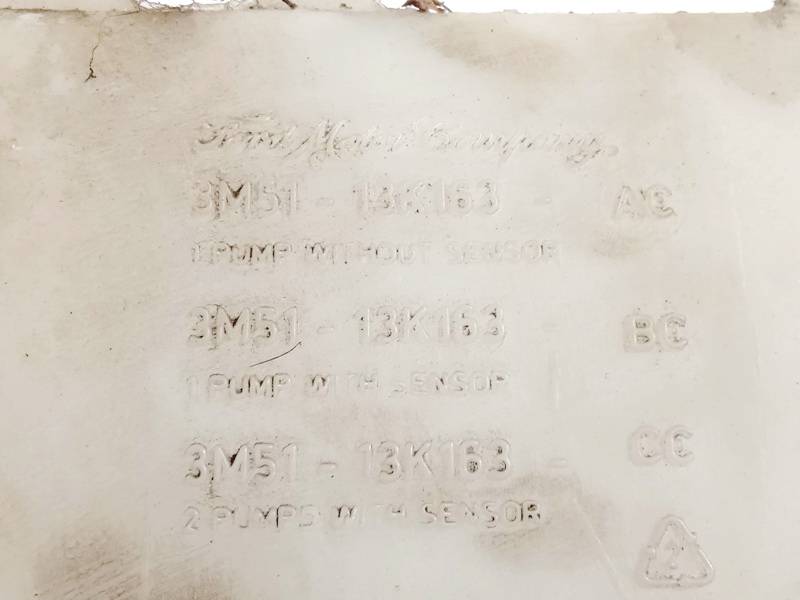 Ford Motor Company.
3M51 - 13K163 - AC
1 PUMP WITHOUT SENSOR
3M51 - 13K163 - BC
1 PUMP WITH SENSOR
3M51 - 13K163 - CC
2 PUMPS WITH SENSOR
2